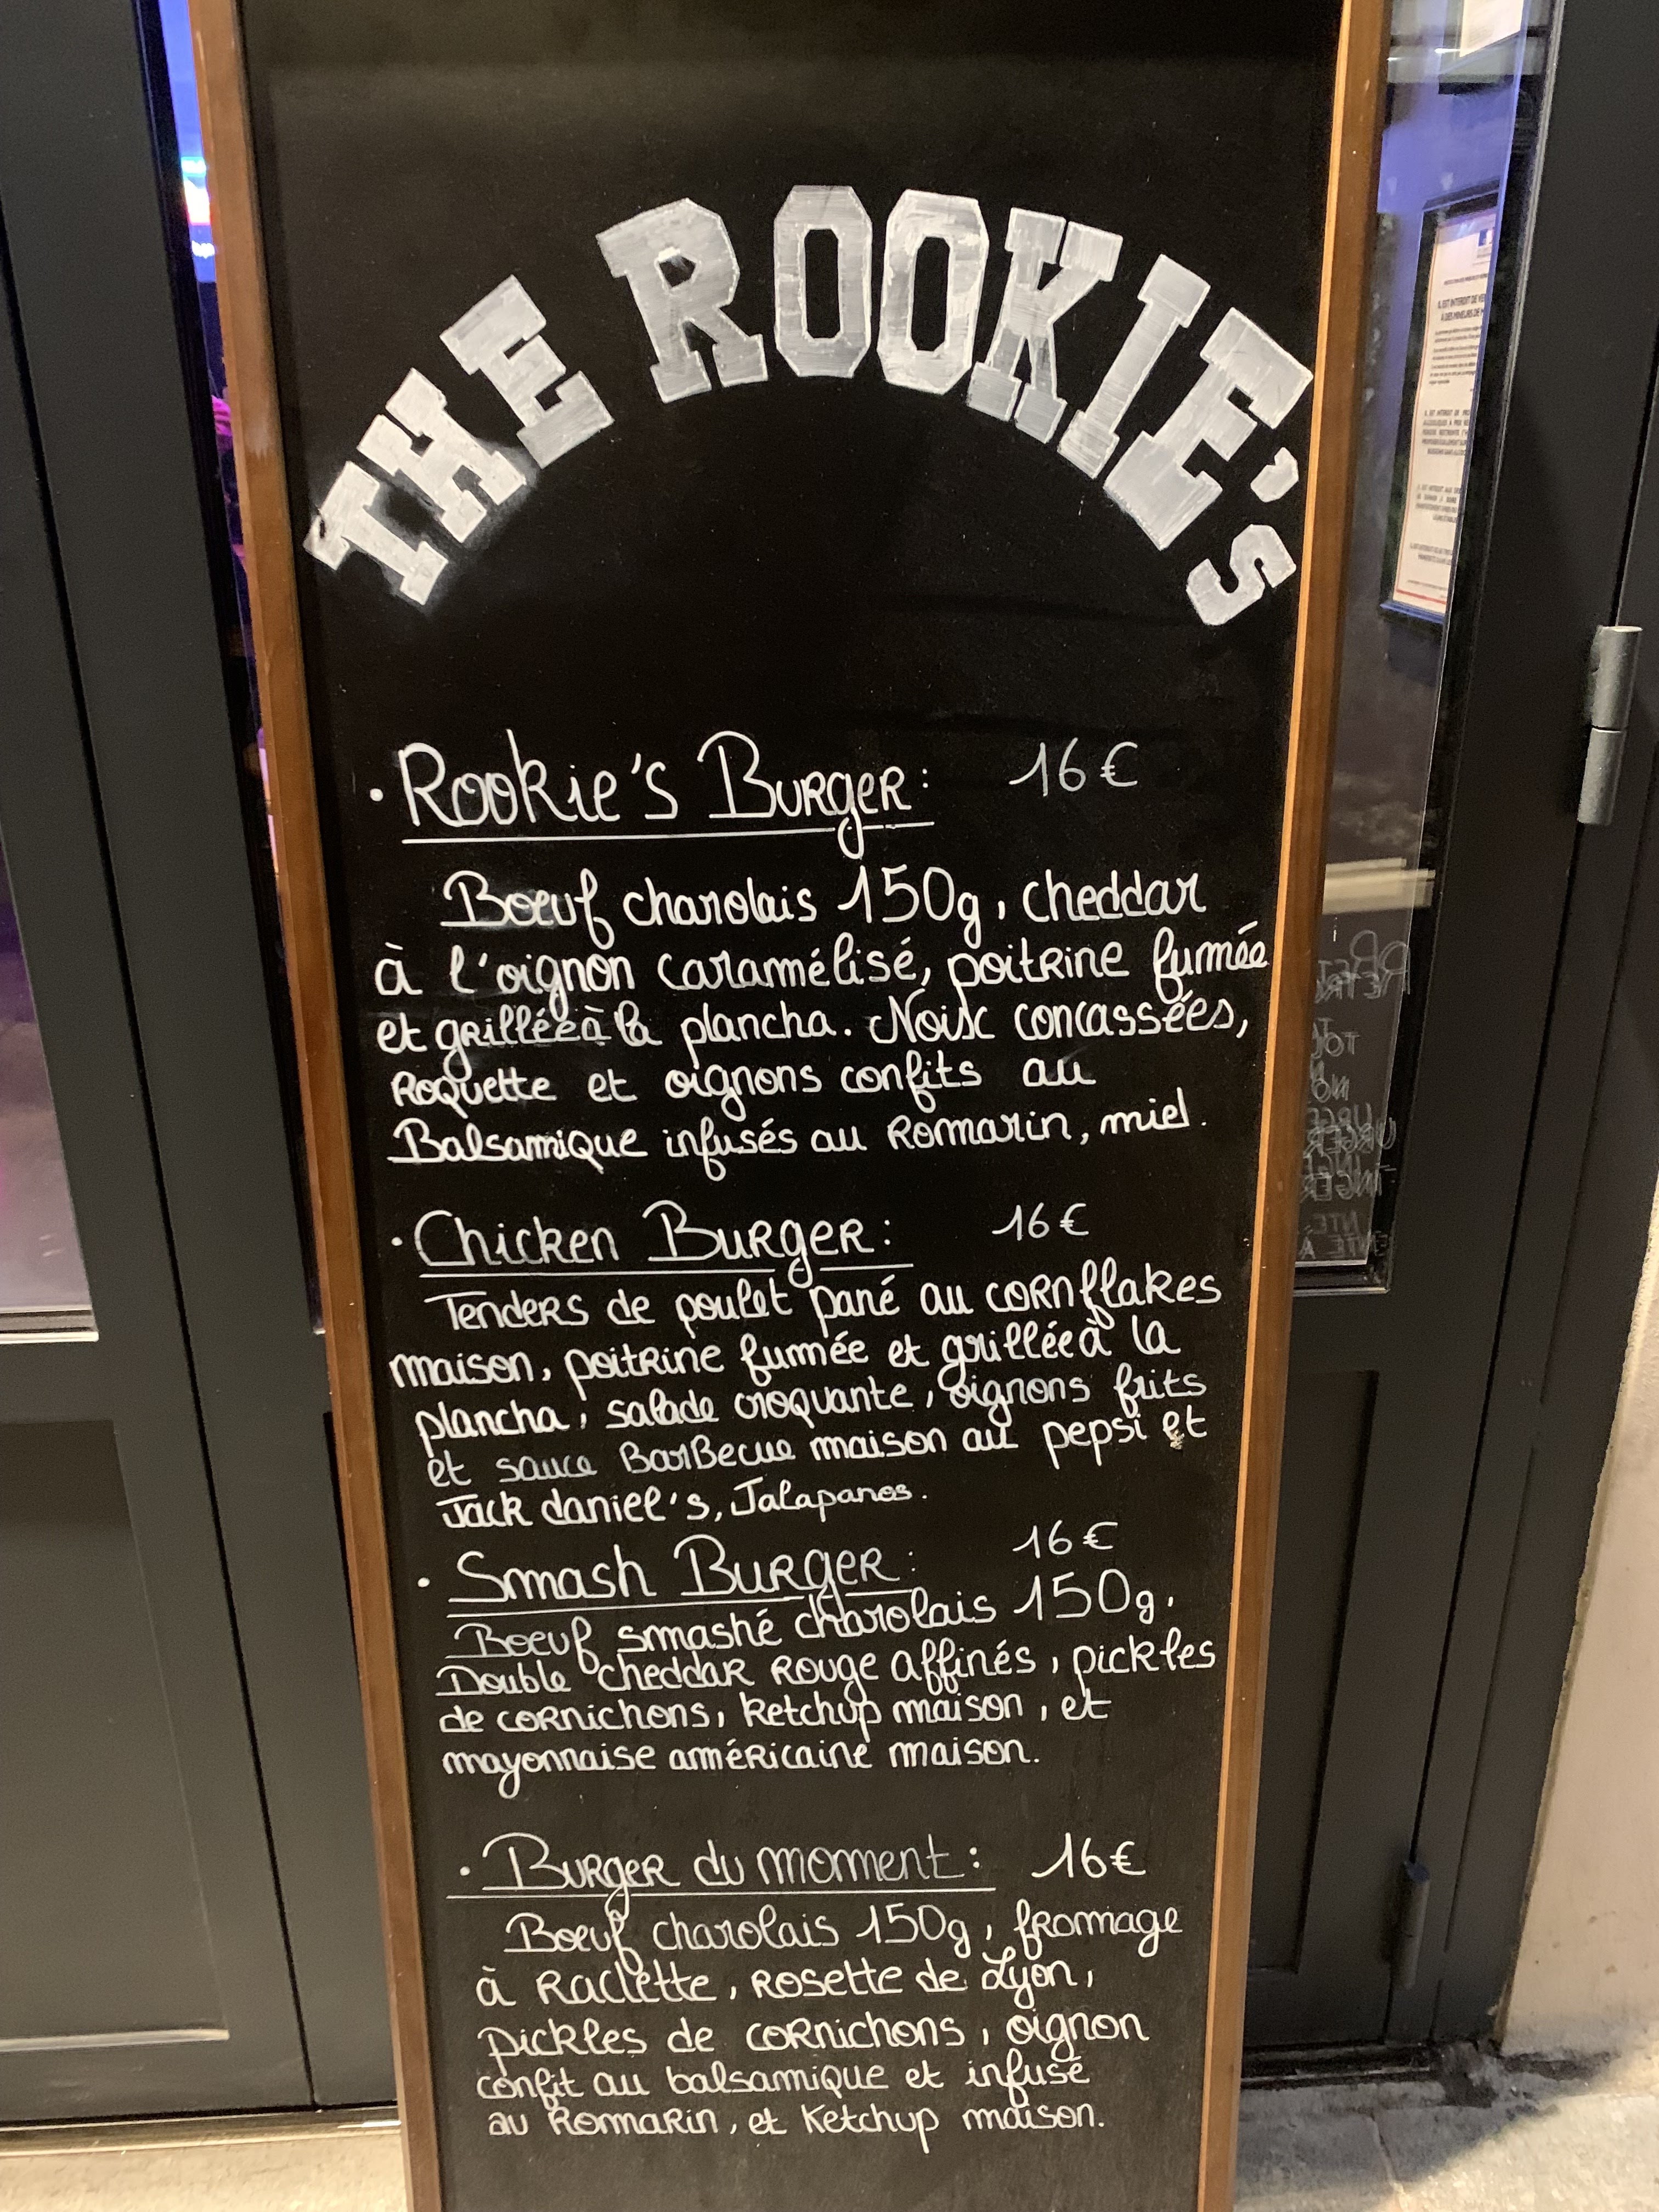 THE ROOKIE'S
· Rookie's Burger: 16€
Boeuf charolais 150g, cheddar
à l'oignon caramélisé, poitrine fumée
et grillée à la plancha. Noix concassées,
Roquette et oignons confits au
Balsamique infusés au Romarin, miel.
· Chicken Burger: 16€
Tenders de poulet pané au cornflakes
maison, poitrine fumée et grillée à la
plancha, salade croquante, oignons frits
et sauce BarBecue maison au pepsi et
Jack daniel's, Jalapanos.
· Smash Burger: 16€
Boeuf smashé charolais 150g.
Double cheddar rouge affinés, pickles
de cornichons, ketchup maison, et
mayonnaise américaine maison.
· Burger du moment: 16€
Boeuf charolais 150g, fromage
à Raclette, Rosette de Lyon,
pickles de cornichons, oignon
confit au balsamique et infusé
au Romarin, et Ketchup maison.